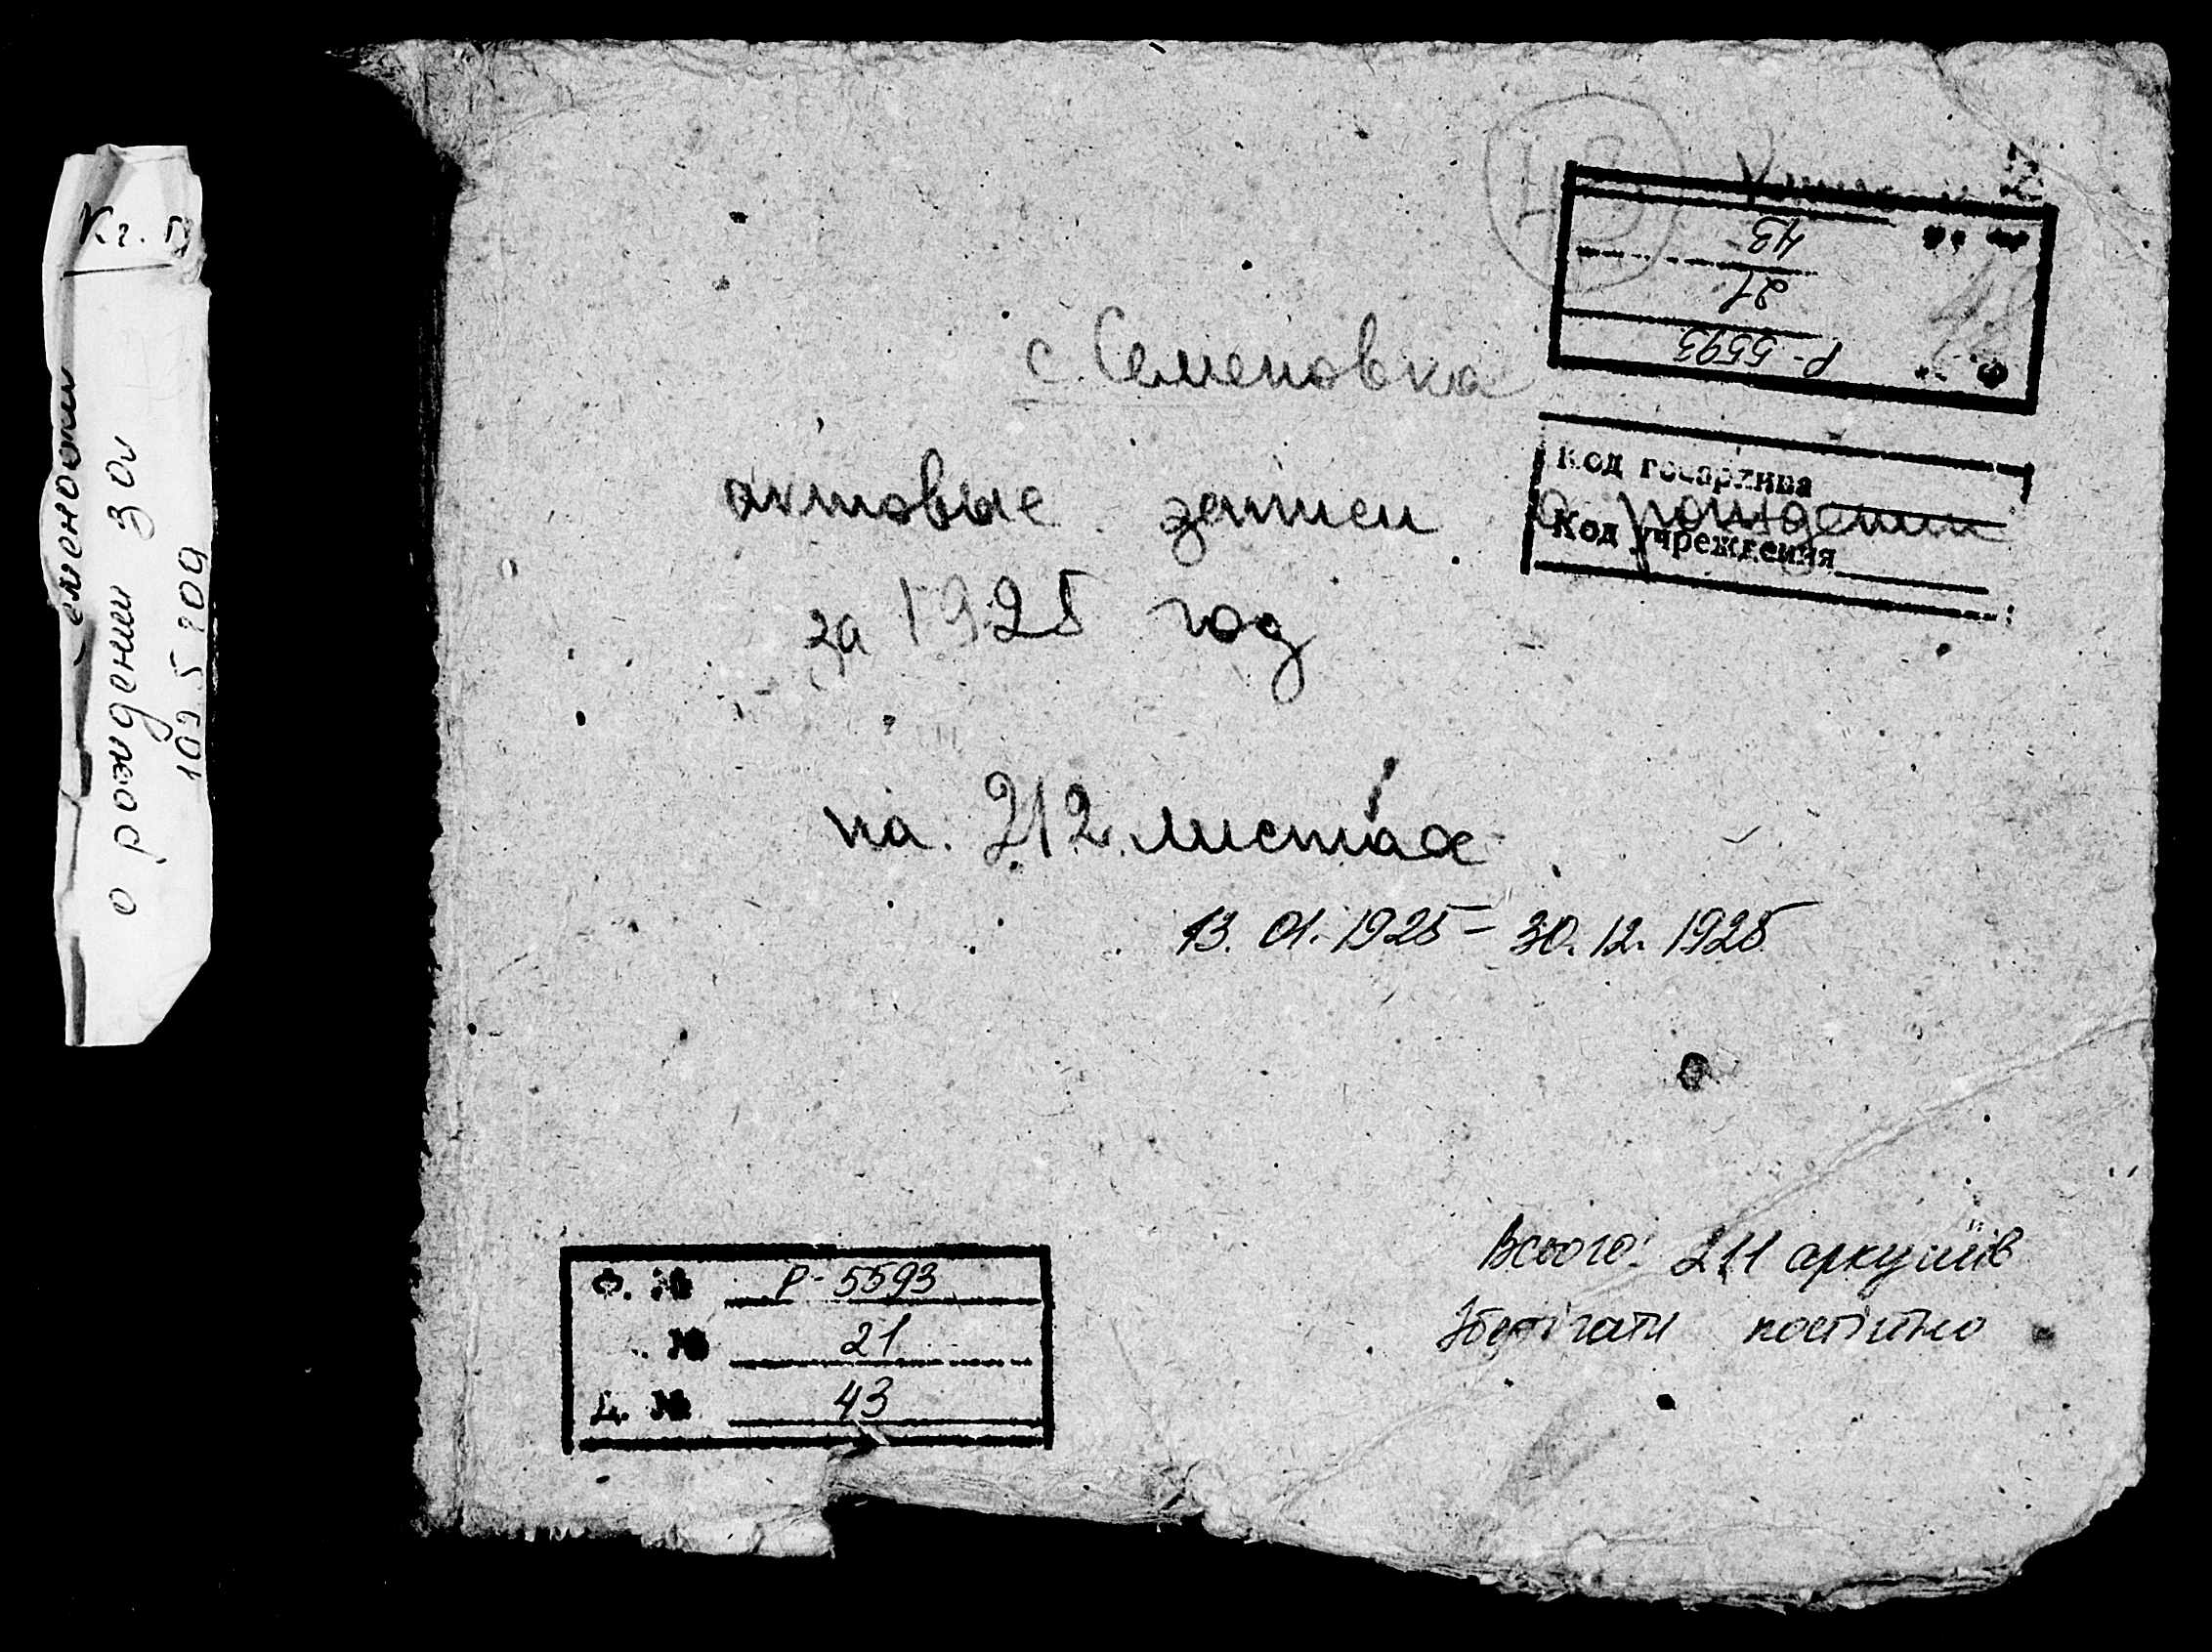 о рождении за
1925 год
43
21
Р-5593
Ф.
с. Семеновка
Код госархива
актовые записи о рождении
Код учреждения
за 1925 год
на 212 листах
13.01.1925 – 30.12.1925
Всього: 211 аркушів
Зберігати постійно
Ф. № Р-5593
№ 21
Д. № 43